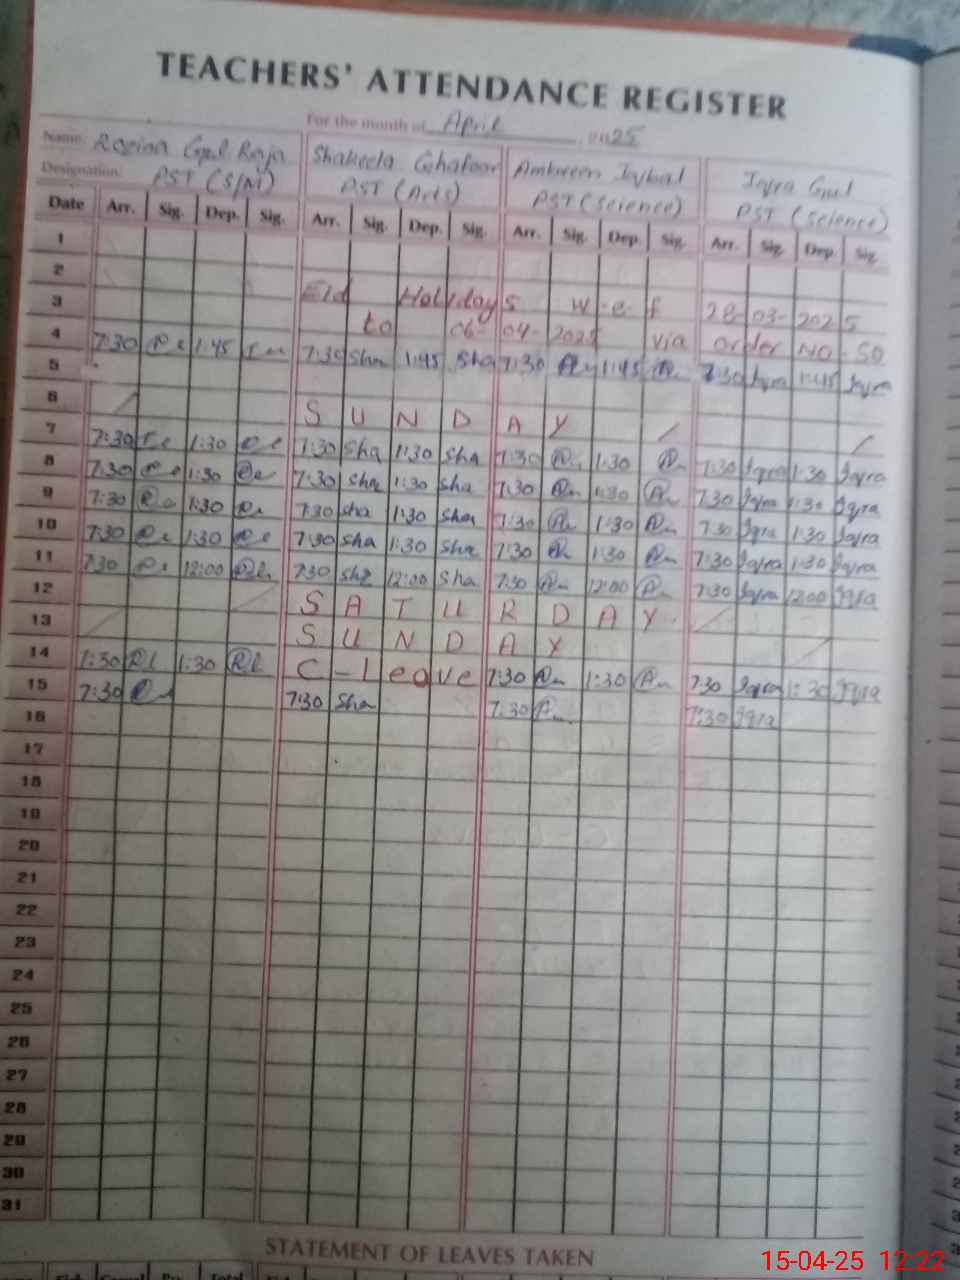 TEACHERS' ATTENDANCE REGISTER
For the month of April 2025
Name: Rozina Gul Raja Shakeela Ghafoor Ambreen Iqbal Iqra Gul
Designation: PST (S/M) PST (Arts) PST (Science) PST (Science)
Date Arr. Sig. Dep. Sig. Arr. Sig. Dep. Sig. Arr. Sig. Dep. Sig. Arr. Sig. Dep. Sig.
1
2
3 Eid Holidays w-e-f 28-03-2025
4 to 06-04-2025 via order No. 50
5 7:30 1:45 7:30 Sha 1:45 Sha 7:30 1:45 7:30 Iqra 1:45 Iqra
6 SUNDAY
7 7:30 1:30 1:30 Sha 1:30 Sha 7:30 1:30 7:30 Iqra 1:30 Iqra
8 7:30 1:30 7:30 Sha 1:30 Sha 7:30 1:30 7:30 Iqra 1:30 Iqra
9 7:30 1:30 7:30 Sha 1:30 Sha 7:30 1:30 7:30 Iqra 1:30 Iqra
10 7:30 1:30 7:30 Sha 1:30 Sha 7:30 1:30 7:30 Iqra 1:30 Iqra
11 7:30 12:00 7:30 Sha 12:00 Sha 7:30 12:00 7:30 Iqra 12:00 Iqra
12 SATURDAY
13 SUNDAY
14 1:30 1:30 C-Leave 7:30 1:30 7:30 Iqra 1:30 Iqra
15 7:30 7:30 Sha 7:30 7:30 Iqra
16
17
18
19
20
21
22
23
24
25
26
27
28
29
30
31
STATEMENT OF LEAVES TAKEN
15-04-25 12:22